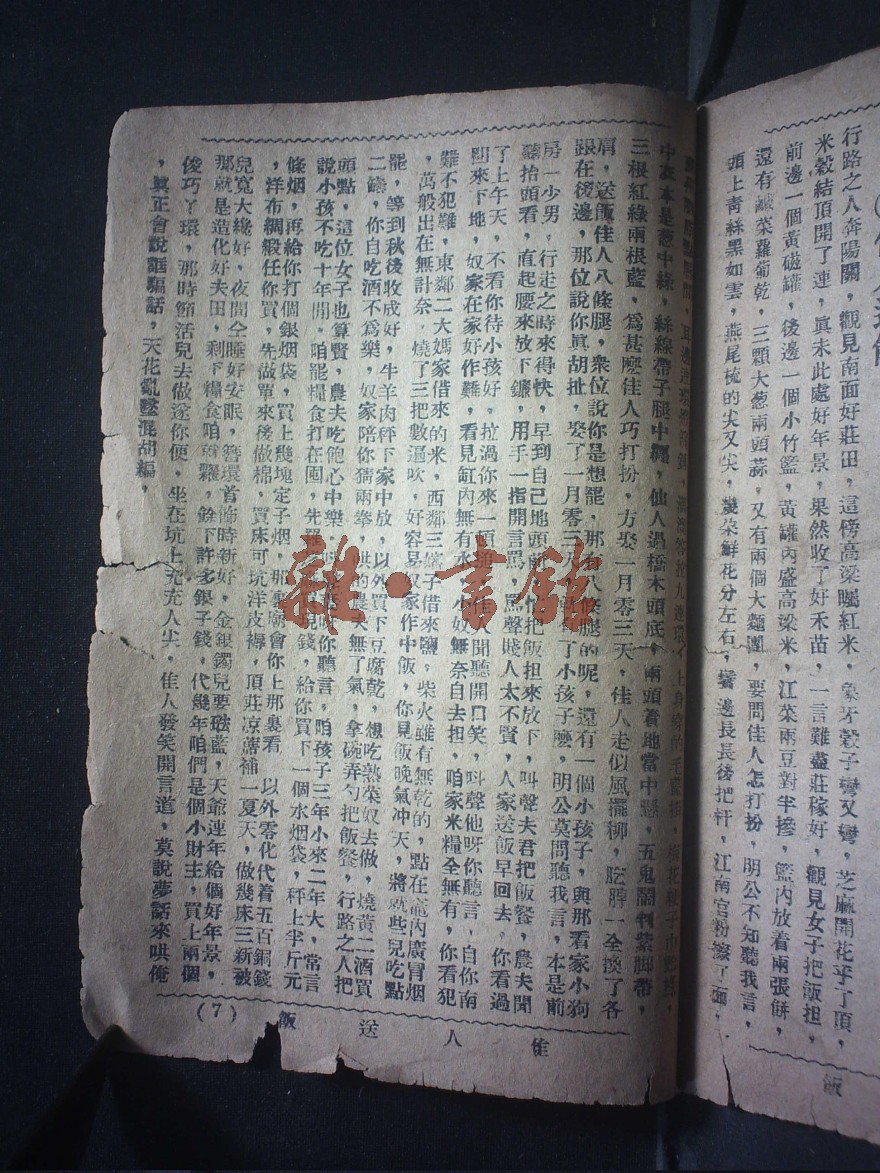 行路之人奔陽關，觀見南面好莊田，這傍高梁曯紅米，象牙穀子彎又彎，芝麻開花乎了頂，
米穀結頂開了連，眞未此處好年景，果然收了好禾苗，一言難盡莊稼好，觀見女子把飯担，
前邊一個黃磁罐，後邊一個小竹籃，黃罐內盛高梁米，江菜兩豆對半摻，籃內放着兩張餅，
還有鹹菜蘿蔔乾，三顆大葱兩頭蒜，又有兩個大麵團，要問佳人怎打扮，明公不知聽我言，
頭上靑絲黑如雲，燕尾梳的尖又尖，幾朶鮮花分左右，鬢邊長長後把杆，江南官粉擦了面，
耳邊
上身穿的毛藍
中衣本是葱中綠，絲線帶子腿中纏，仙人過橋木頭底，兩頭着地當中懸，五鬼鬧判紫脚帶，
三根紅綠兩根藍，爲甚麽佳人巧打扮，方娶一月零三天，佳人走似風擺柳，肐膊一全換了各
肩，送飯佳人八條腿，衆位說你是想罷，那有八條腿的呢，還有一個小孩子，與那看家小狗
跟在後邊，那位說你眞胡扯，娶了一月零三天，就有了小孩子麽，明公莫問聽我言，本是前
房一少男，行走之時來得快，早到自己地頭前，
把飯担來放下，叫聲夫君把飯餐，農夫聞
聽抬頭看，直起腰來放下鐮，用手一指開言罵，罵聲賤人太不賢，人家送飯早回去，你看過
了上午天，不看你待小孩好，拉過你來一頓
，佳人聞聽開口笑，叫聲他呀你聽言，自你南
閻來下地，奴家在家好作難，看見缸內無有水，小奴無奈自去担，咱家米糧全無有，你看犯
難不犯難，東鄰二大媽家借來的米，西鄰三嫂子借來鹽，柴火雖有無乾的，點在竈內廣冒烟
，萬般出在無計奈，燒了三把數漚吹，好容易奴家作中飯，你見飯晚氣冲天，將就些兒吃點
罷，等到秋後收成好，牛羊肉秤下家中放，以外買下豆腐乾，想吃熟菜奴去做，燒黃二酒買
二罎，你自吃酒不爲樂，奴家陪你猜兩拳，
的農夫無了氣，拿碗弄勺把飯餐，行路之人把
頭點，這位女子也算賢，農夫吃飽心中樂，
你聽言，咱孩子三年小來二年大，常言
說小孩不吃十年閒，咱罷糧食打在囤，先糶
現錢，給你買下一個水烟袋，秤上半斤元
條烟，再給你打個銀烟袋，買上幾塊定子烟，那裏廟會你上那裏看，以外零化代着五百銅錢
，洋布綢緞任你買，先做單來後做棉，買床可坑洋皮褥，頂莊凉蓆補一夏天，做幾床三新被
兒寬大纔好，夜間全睡好安眠，簪環首飾時新好，金銀鐲兒要磁藍，天爺連年給個好年景，
那就是造化好夫田，剩下糧食咱就糶，餘下許多銀子錢，代幾年咱們是個小財主，買上兩個
俊巧丫環，那時節活兒去做遂你便，坐在坑上充充人尖，佳人發笑開言道，莫說夢話來哄俺
，眞正會說誆騙話，天花亂墜混胡編，
佳人送飯
（7）
飯
雜·書館